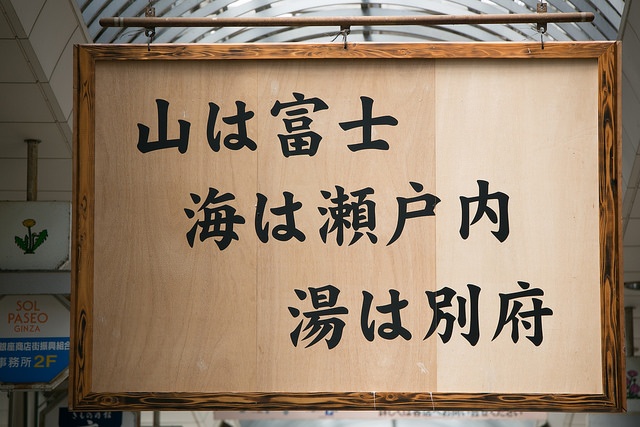 山は富士
海は瀬戸内
湯は別府
SOL
PASEO
GINZA
銀座商店街振興組合
事務所 2F